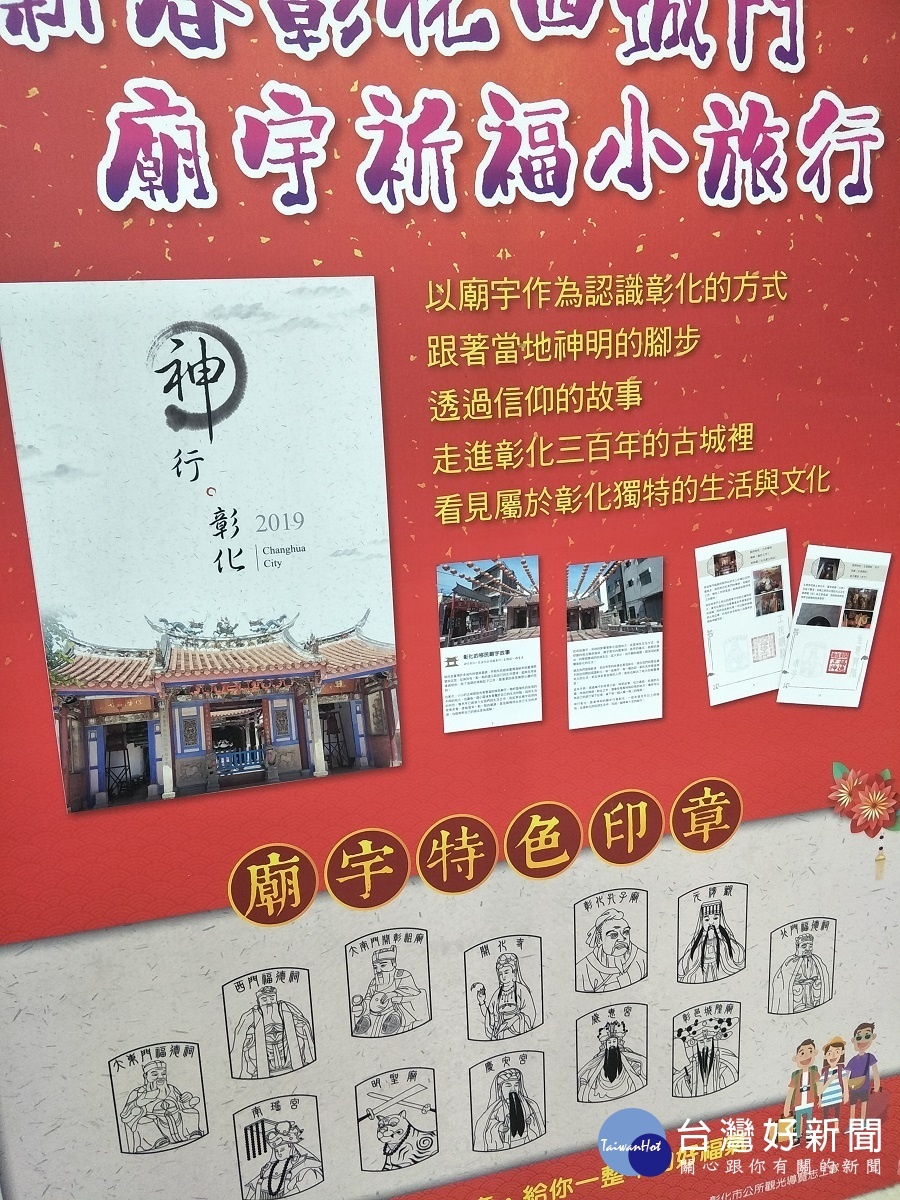 新春彰化西城門
廟宇祈福小旅行
以廟宇作為認識彰化的方式
跟著當地神明的腳步
透過信仰的故事
走進彰化三百年的古城裡
看見屬於彰化獨特的生活與文化
神行。彰化
2019
Changhua
City
彰化的移民廟宇故事
廟宇特色印章
大東門福德祠
西門福德祠
大南門開彰祖廟
開化寺
彰化孔子廟
元清觀
北門福德祠
南瑤宮
明聖廟
慶安宮
威惠宮
彰邑城隍廟
給你一整年的好福氣
彰化市公所觀光導覽志工隊
TaiwanHot
台灣好新聞
關心跟你有關的新聞